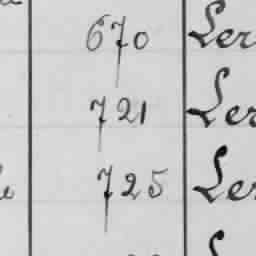 670 Ler
721 Ler
725 Ler